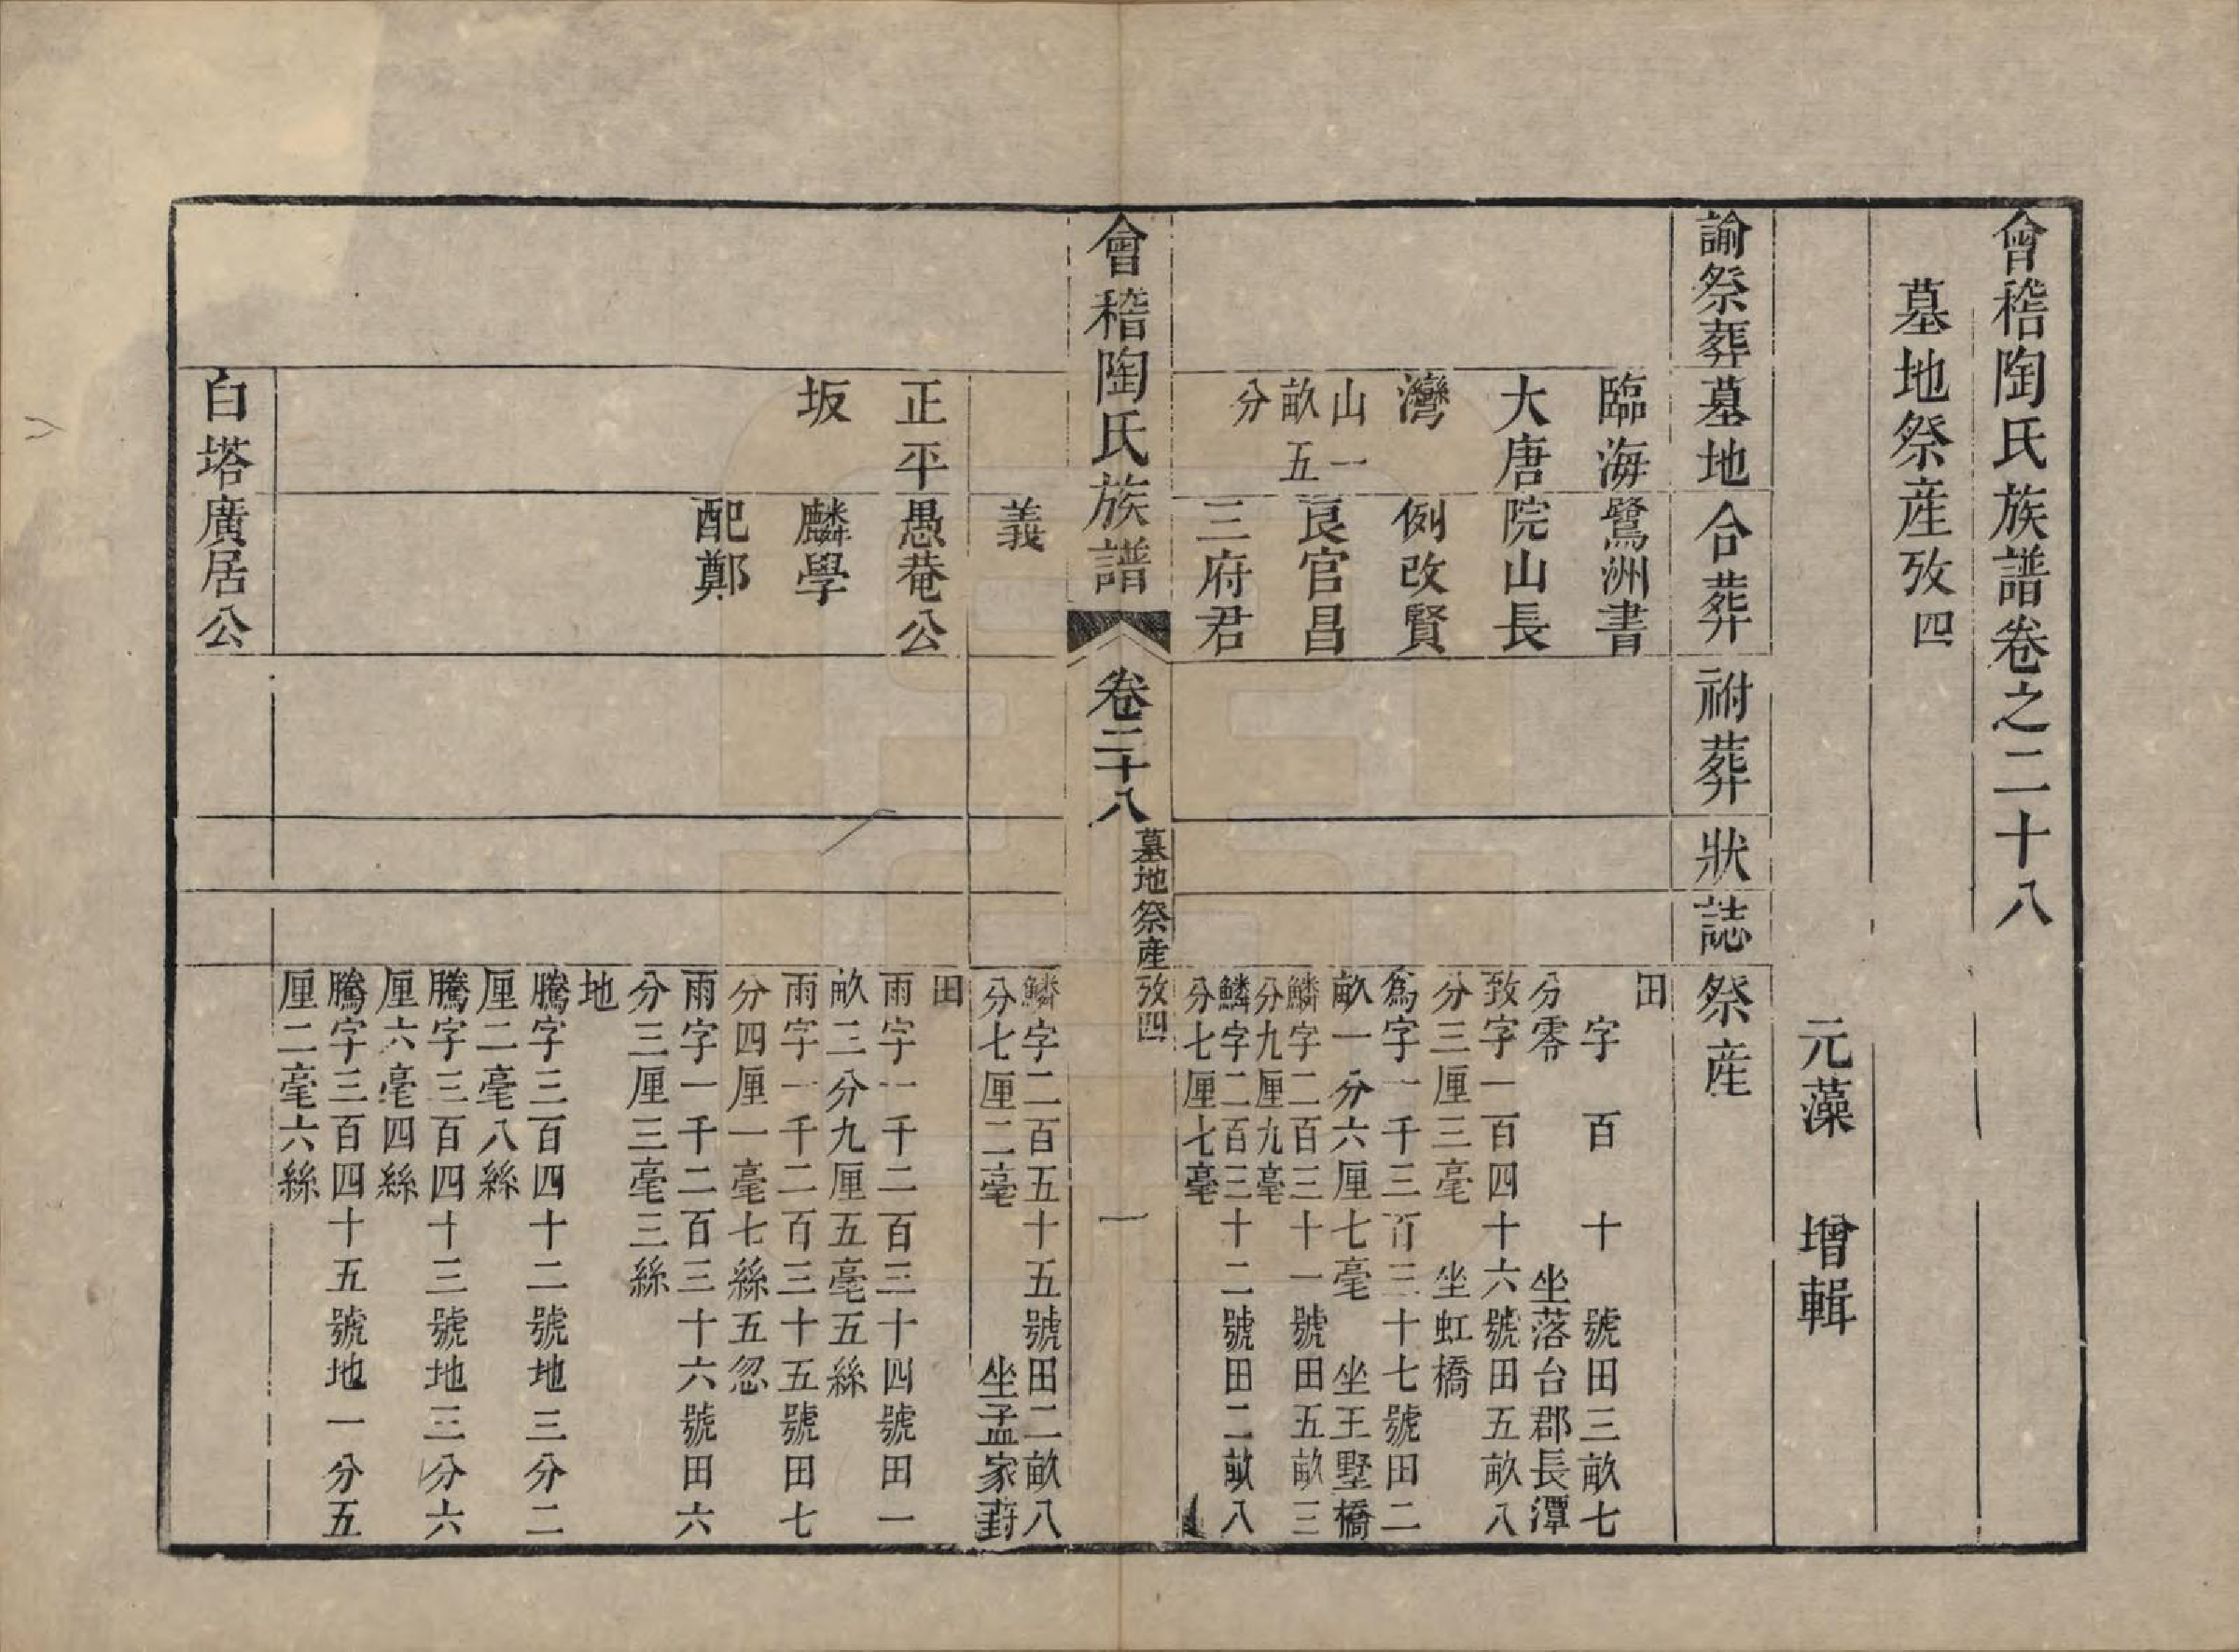 會稽陶氏族譜卷之二十八
墓地祭産攷四
元藻　增輯
諭祭葬
墓地
合葬
祔葬
狀
誌
祭産
臨海
大唐
灣
山一
畝五
分
鷺洲書
院山長
例改賢
良官昌
三府君
田
字　百　十　號田三畝七
分零　坐落台郡長潭
致字一百四十六號田五畝八
分三厘三毫　坐虹橋
為字一千三百三十七號田二
畝一分六厘七毫　坐王墅橋
鱗字二百三十一號田五畝三
分九厘九毫
鱗字二百三十二號田二畝八
分七厘七毫
會稽陶氏族譜
卷二十八
墓地祭産攷四
一
義
鱗字二百五十五號田二畝八
分七厘二毫　坐孟家葑
正平
坂
愚菴公
麟學
配鄭
田
雨字一千二百三十四號田一
畝二分九厘五毫五絲
雨字一千二百三十五號田七
分四厘一毫七絲五忽
雨字一千二百三十六號田六
分三厘三毫三絲
地
騰字三百四十二號地三分二
厘二毫八絲
騰字三百四十三號地三分六
厘六毫四絲
騰字三百四十五號地一分五
厘二毫六絲
白塔
廣居公